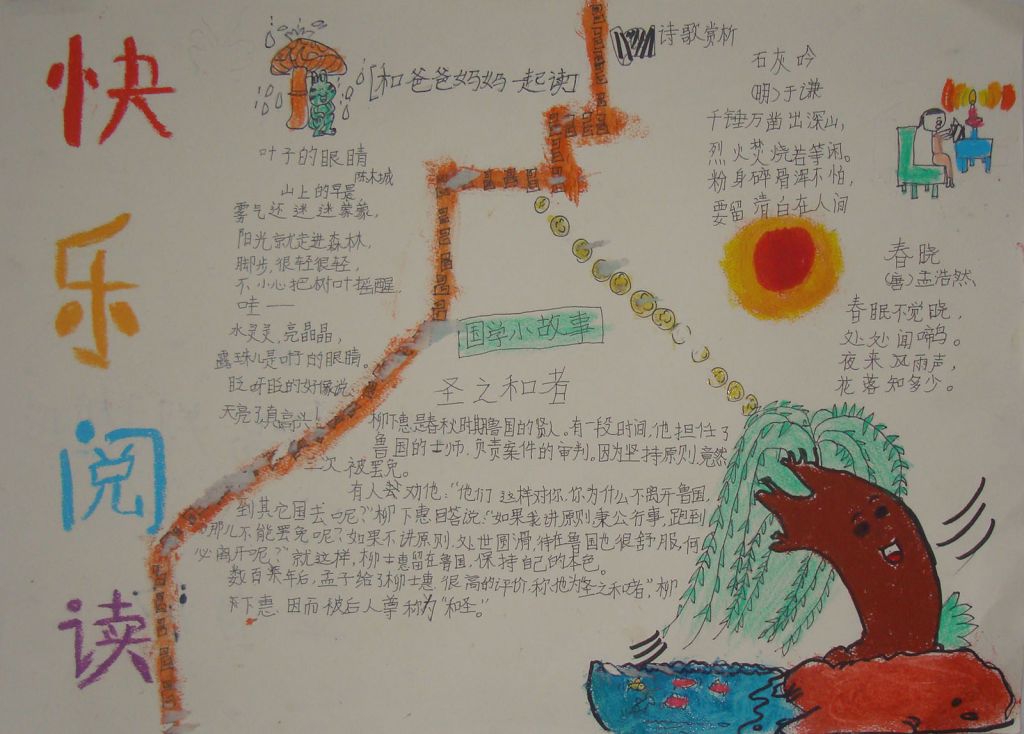 快乐阅读
[和爸爸妈妈一起读]
叶子的眼睛
陈木城
山上的早晨,
雾气还迷迷蒙蒙,
阳光就走进森林,
脚步,很轻很轻,
不小心把树叶摇醒..
哇——
水灵灵,亮晶晶,
露珠儿是叶子的眼睛。
眨呀眨的好像说:
天亮了真高兴!
诗歌赏析
石灰吟
(明)于谦
千锤万凿出深山,
烈火焚烧若等闲。
粉身碎骨浑不怕,
要留清白在人间
春晓
(唐)孟浩然
春眠不觉晓,
处处闻啼鸟。
夜来风雨声,
花落知多少。
国学小故事
圣之和者
柳下惠是春秋时期鲁国的贤人。有一段时间,他担任了
鲁国的士师,负责案件的审判。因为坚持原则,竟然
三次被罢免。
有人去劝他:“他们这样对你,你为什么不离开鲁国,
到其它国去呢?”柳下惠回答说:“如果我讲原则,秉公行事,跑到
哪儿不能罢免呢?如果不讲原则,处世圆滑,待在鲁国也很舒服,何
必离开呢?”就这样,柳士惠留在鲁国,保持自己的本色。
数百年后,孟子给了柳士惠很高的评价,称他为圣之和者”,柳
下惠,因而被后人尊称为“和圣。”